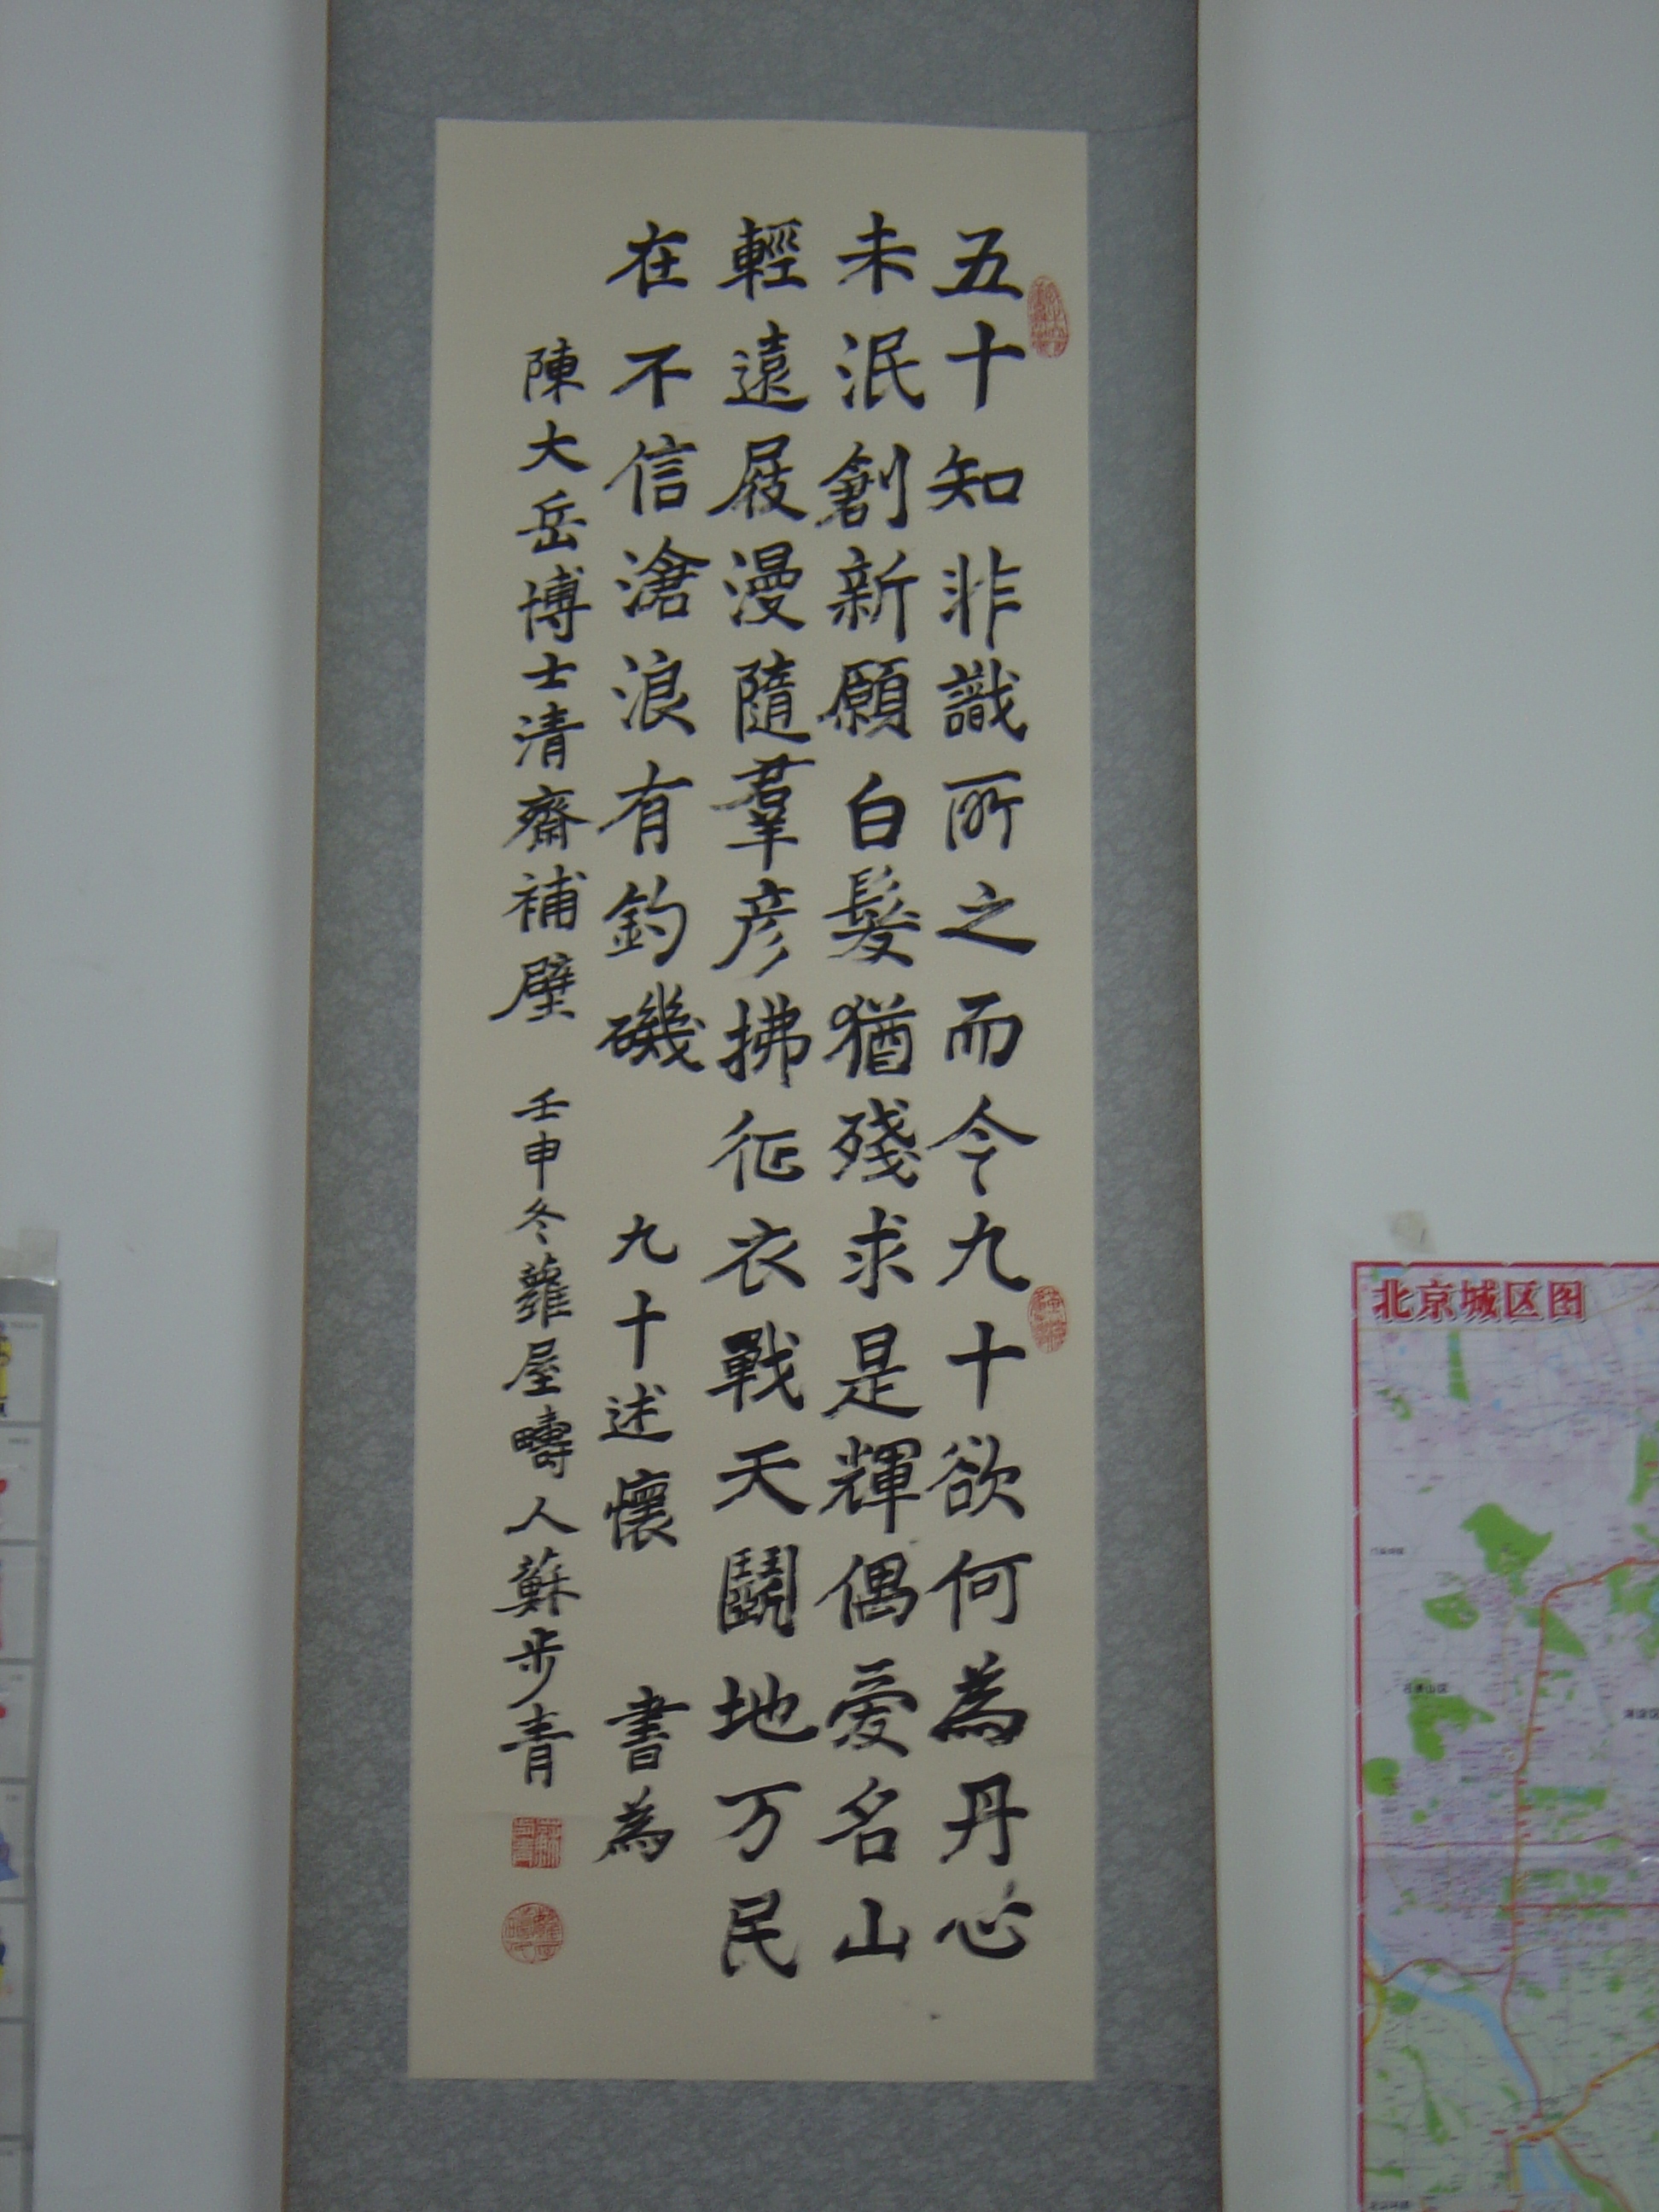 五十知非識所之而今九十欲何為丹心
未泯創新願白髮猶殘求是輝偶爱名山
輕遠屐漫隨羣彦拂征衣戰天鬬地万民
在不信滄浪有釣磯 九十述懷 書為
陳大岳博士清齋補壁 壬申冬蘿屋疇人蘇步青
北京城区图
石景山区